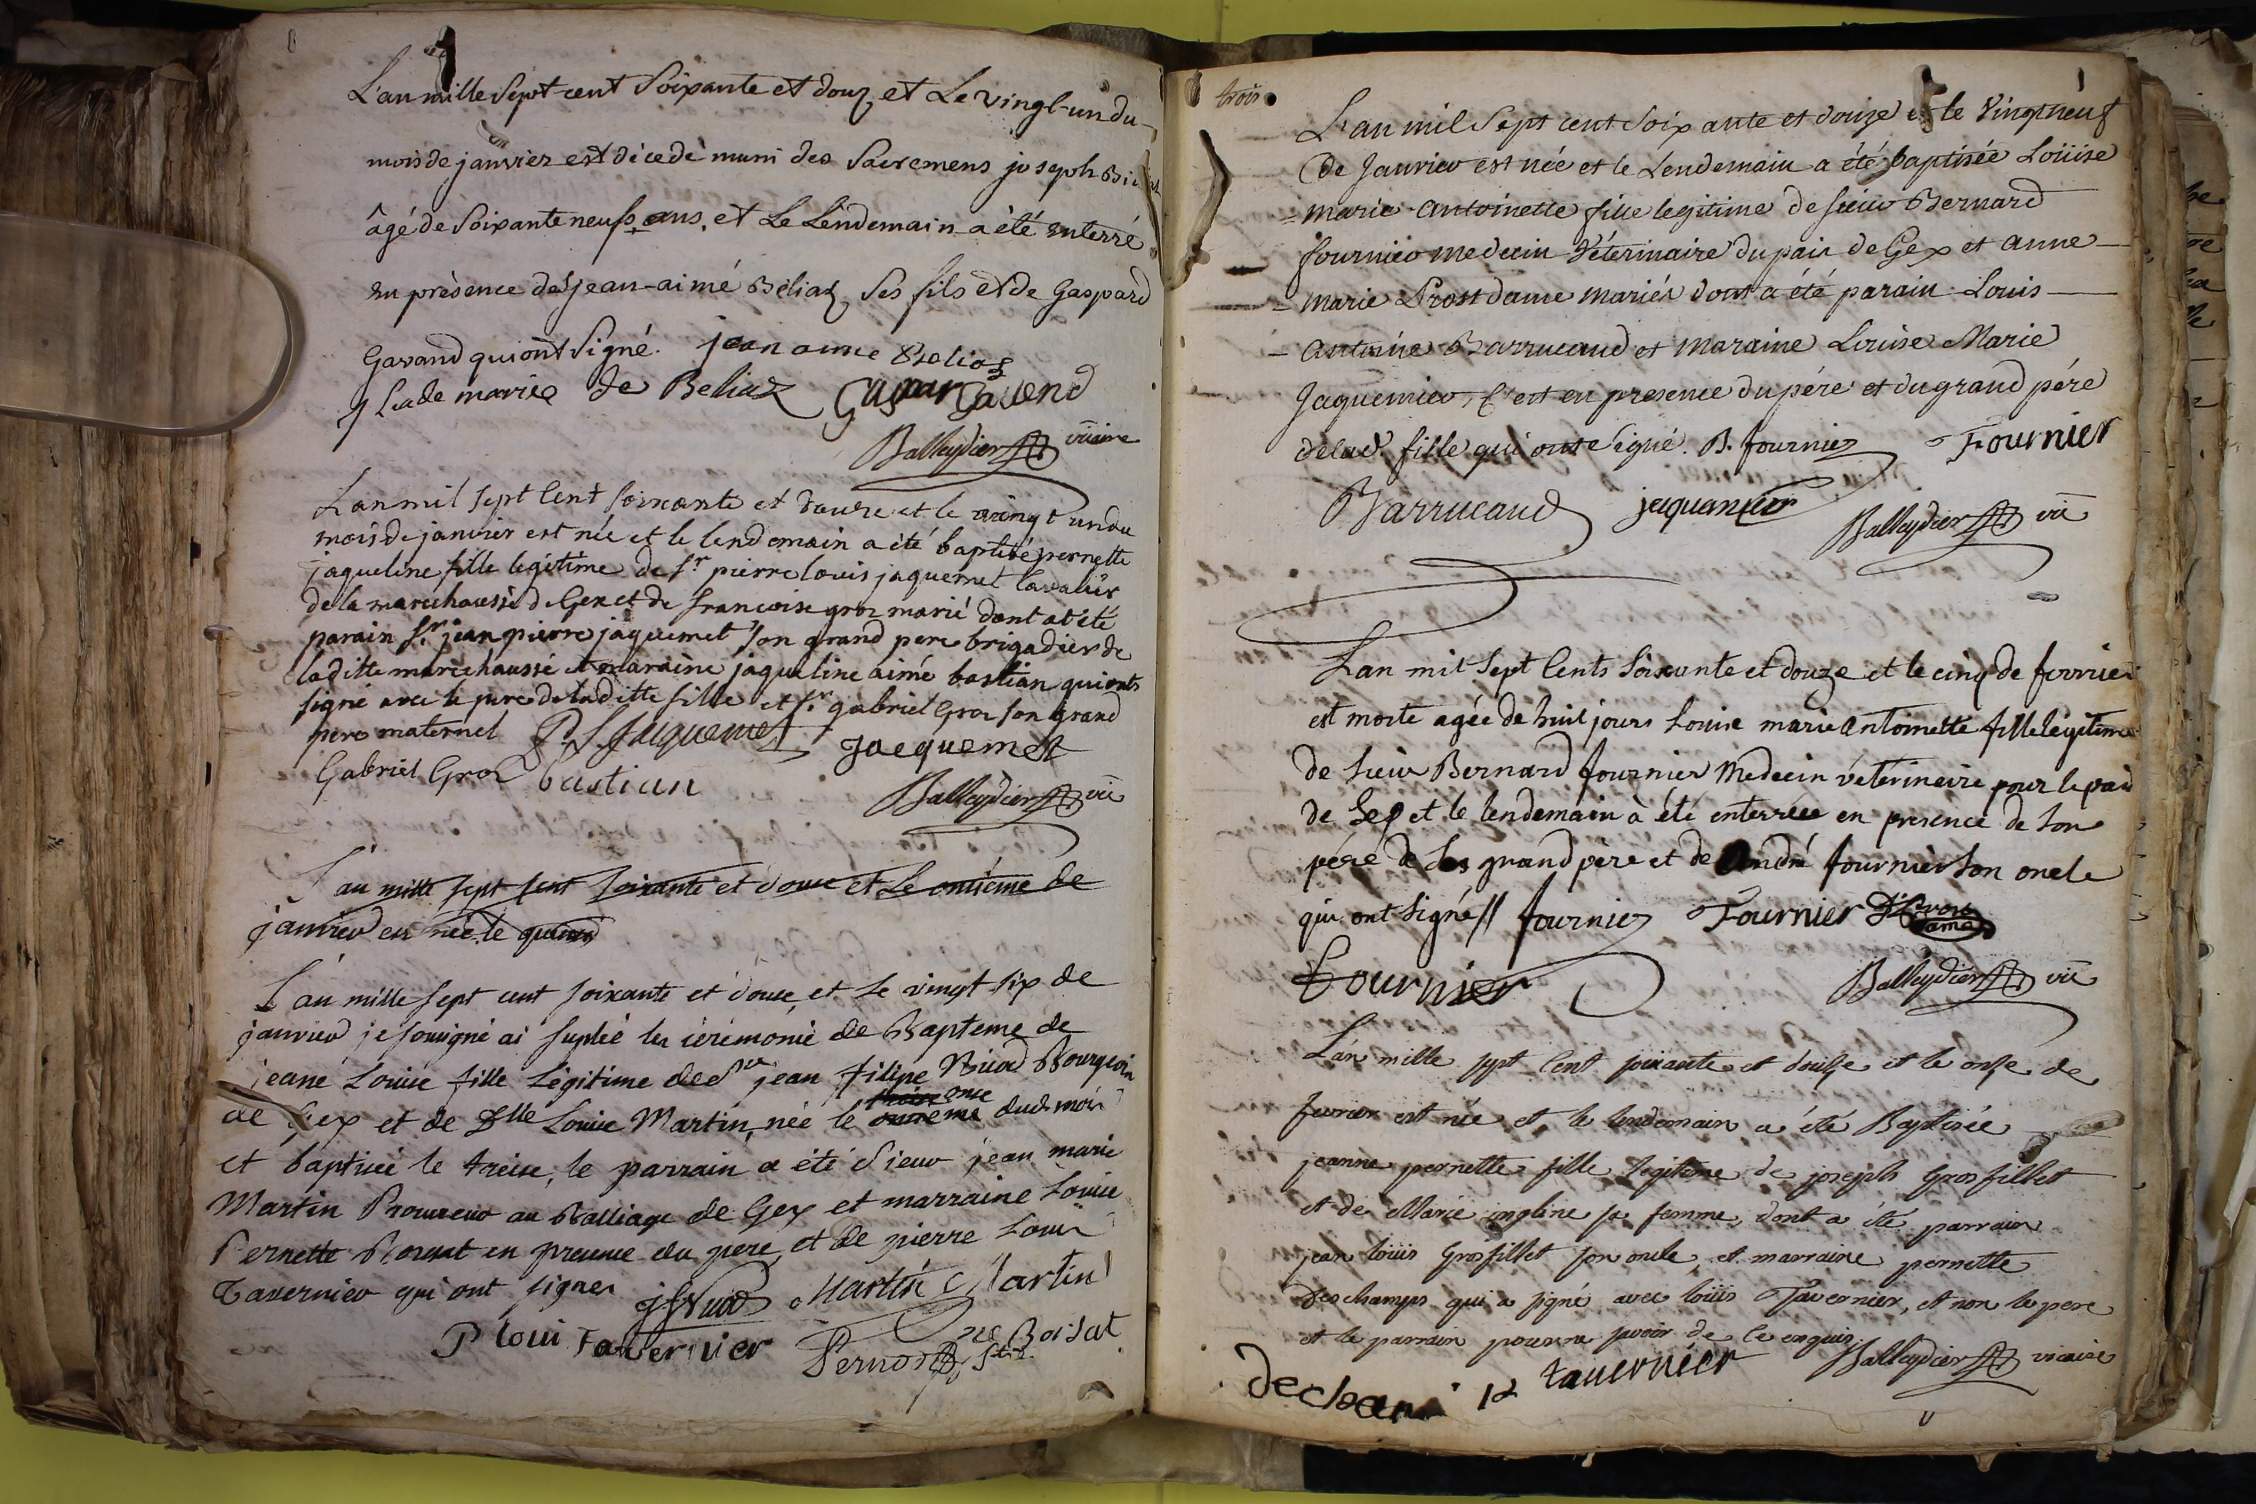 L'an mille Sept cent Soixante et douz et Le vingt-un du
mois de janvier est décedé muni des Sacremens joseph
âgé de Soixante neuf ans, et Le Lendemain a été enterré
en présence de jean-aimé Béliaz Ses fils et de Gaspard
Gavand qui ont Signé. jean aime Beliaz
de marie de Beliaz Gaspar Gavend
Balleydier viicaire
L'an mil sept Cent soixante et douze et le vingt un du
mois de janvier est née et le lendemain a été baptisé pernette
jaqueline fille legitime de Sr pierre louis jaquemet Cavalier
de la marechaussé de Gex et de francoise gros marié dont at été
parain Sr jean pierre jaquemet son grand pere brigadier de
laditte marechaussé et maraine jaqueline aimé bastian qui onts
signé avec le pere de laditte fille et Sr gabriel Gros son grand
pere maternel P. L. Jaquemet Jacquemet
Gabriel Gros bastian
Balleydier vic
L'an mille sept sent soixante et douse et Le onsieme de
janvier est née le
L'an mille sept cent soixante et douse, et Le vingt six de
janvier je sousigné ai suplée les cérémonie de Bapteme de
jeane Louise fille Légitime de Sr jean filipe Bourgeois
de Gex et de Dlle Louise Martin, née le onse dud. mois
et baptisée le treise, le parrain a été Sieur jean marie
Martin Procureur au Balliage de Gex et marraine Louise
Pernette Borsat en presence du pere, et de pierre Louis
Tavernier qui ont signer Martin Martin
P loui Tavernier Borsat
trois
L'an mil Sept cent Soixante et douze et le Vingt neuf
de Janvier est née et le Lendemain a été baptisée Loüise
= Marie - Antoinette fille legitime de Sieur Bernard
fournier medecin Véterinaire du païs de Gex et Anne
= Marie Prost dame mariés dont a été parain Louis
- Antoine Barrucaud et Maraine Louise Marie
Jaquemier, C'est en presence du pére et du grand pére
de lad. fille qui ont Signé. B. fournier Fournier
Barrucaud jaquemier
Balleydier vic
L'an mil sept Cents Soixante et douze et le cinq de fevrier
est morte agée de huit jours Louise marie antoinette fille legitime
de Sieur Bernard fournier Medecin véterinaire pour le païs
de Gex et le lendemain à été enterrée en presence de Son
pére de Son grand père et de André fournier Son oncle
qui ont Signé // fournier Fournier
Fournier
Balleydier vic
L'an mille sept Cent soixante et doulze et le onze de
fevrier est née et le lendemain a été Baptisée
jeanne pernette fille legitime de joseph Grosfillet
et de Marie ingline sa femme, dont a été parrain
jean loüis Grosfillet son oncle, et marraine pernette
Deschamps qui a signé avec loüis Tavernier, et non le pere
et le parrain pour ne savoir de ce enquis.
Balleydier vicaire
dechan tavernier